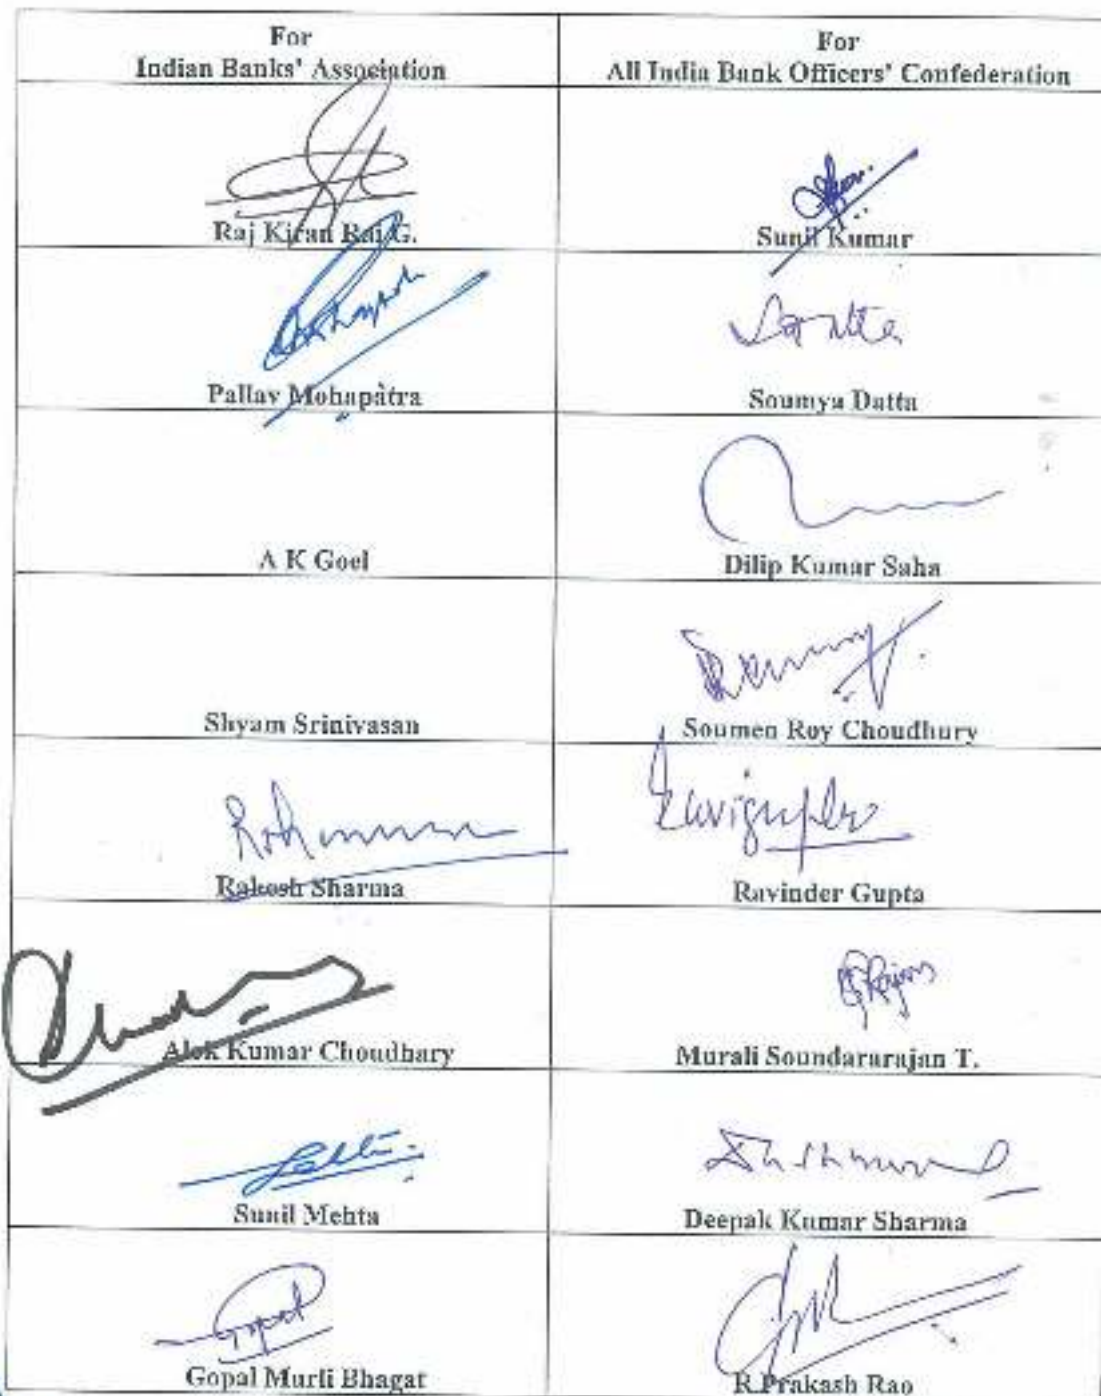 For
Indian Banks' Association
For
All India Bank Officers' Confederation
Raj Kiran Rai G.
Sunil Kumar
Pallav Mohapatra
Soumya Datta
A K Goel
Dilip Kumar Saha
Shyam Srinivasan
Soumen Roy Choudhury
Rakesh Sharma
Ravigupta
Ravinder Gupta
Alok Kumar Choudhary
Murali Soundararajan T.
Sunil Mehta
Deepak Kumar Sharma
Gopal
Gopal Murli Bhagat
R.Prakash Rao